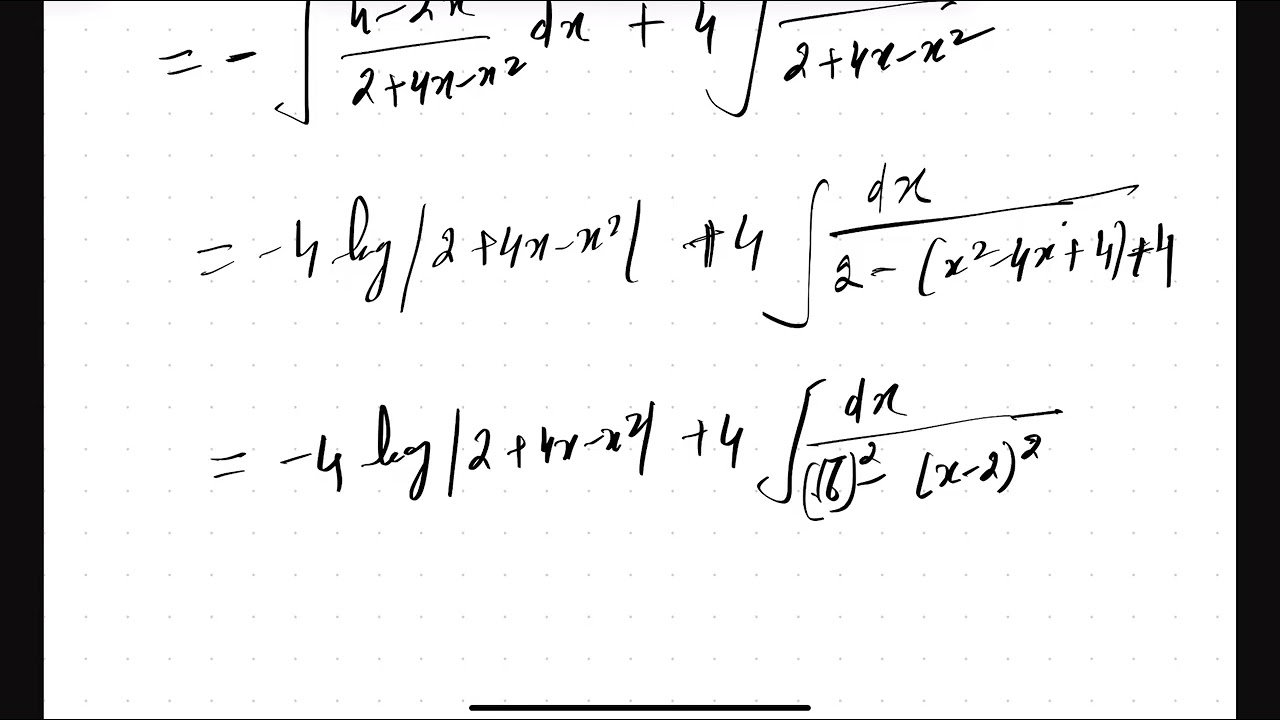 = - ∫ (4-2x)/(2+4x-x²) dx + 4 ∫ /(2+4x-x²)
= -4 log|2+4x-x²| +4 ∫ dx/(2-(x²-4x+4)+4)
= -4 log|2+4x-x²| +4 ∫ dx/((√6)²-(x-2)²)